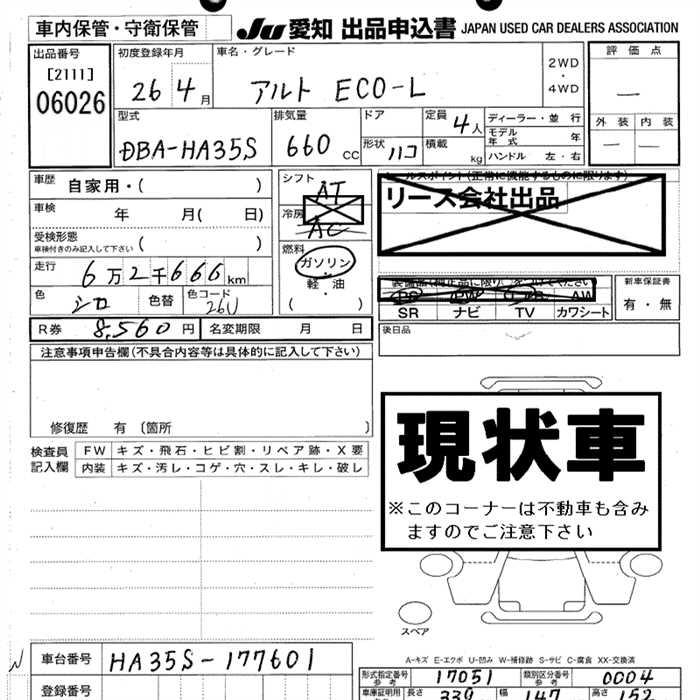 車内保管・守衛保管
JU 愛知 出品申込書 JAPAN USED CAR DEALERS ASSOCIATION
出品番号
[2111]
06026
初度登録年月
26 4 月
車名・グレード
アルト ECO-L
2WD
・
4WD
評価点
—
外装 内装
— —
型式
DBA-HA35S
排気量
660 cc
ドア
形状 ハコ
定員 4人
積載 kg
ディーラー・並行
モデル年式 年
ハンドル 左・右
車歴 自家用・( )
車検 年 月( 日)
受検形態
車検付きのみ記入して下さい ( )
走行 6万2千666km
色 シロ 色替 色コード 26U
R券 8,560円 名変期限 月 日
シフト
AT
冷房
AC
燃料
ガソリン・
軽油・
( )
セールスポイント(正常に機能するものに限ります)
リース会社出品
装備品(純正品に限り○をつけてください)
PS PW エアB AW
SR ナビ TV カワシート
新車保証書
有・無
後日品
注意事項申告欄(不具合内容等は具体的に記入して下さい)
修復歴 有 〔箇所 〕
検査員記入欄
FW キズ・飛石・ヒビ割・リペア跡・X要
内装 キズ・汚レ・コゲ・穴・スレ・キレ・破レ
現状車
※このコーナーは不動車も含み
ますのでご注意下さい
スペア
A-キズ E-エクボ U-凹み W-補修跡 S-サビ C-腐食 XX-交換済
車台番号 HA35S-177601
登録番号
型式指定番号 参考 17051 類別区分番号 参考 0004
車庫証明用 長さ 339 幅 147 高さ 152